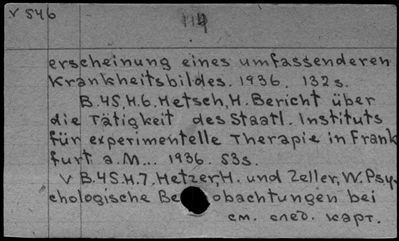 V 546
114
erscheinung eines umfassenderen
Krankheitsbildes. 1936. 132 s.
B.45.H.6. Hetsch, H. Bericht über
die Tätigkeit des Staatl. Instituts
für experimentelle Therapie in Frank
furt a.M... 1936. 53s.
V B.45.H.7. Hetzer, H. und Zeller, W. Psy-
chologische Be obachtungen bei
см. след. карт.